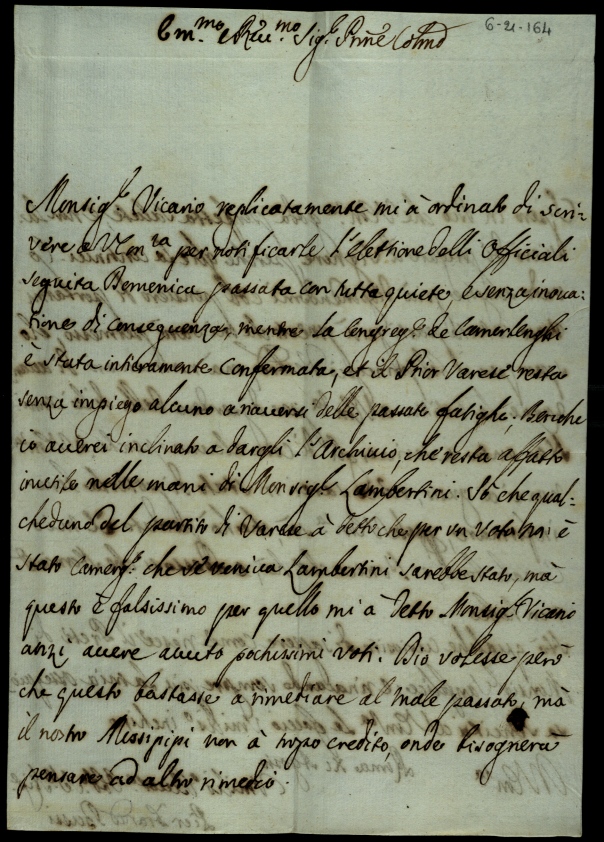 6-21-164
Em.mo e R.mo Sig.r Prñe Colmõ
Monsig.r Vicario replicatamente mi à ordinato di scri-
vere a V. Em.za per notificarle l'elettione delli Officiali
seguita Domenica passata con tutta quiete, e senza inova:
tione di conseguenza, mentre la Congreg.e de Camerlenghi
è stata intieramente confermata, et il Prior Varese resta
senza impiego alcuno a riaversi delle passate fatighe; Benche
io averei inclinato a dargli l'Archivio, che resta affatto
inutile nelle mani di Monsig.r Lambertini. Sò che qual-
cheduno del partito di Varese à detto che per un voto è
stato Camerg.o che se veniva Lambertini sarebbe stato, mà
questo è falsissimo per quello mi à detto Monsig.r Vicario
anzi avere avuto pochissimi voti. Dio volesse però
che questo bastasse a rimediare al male passato, mà
il nostro Missipipi non à tropo credito, onde bisognerà
pensare ad altro rimedio.